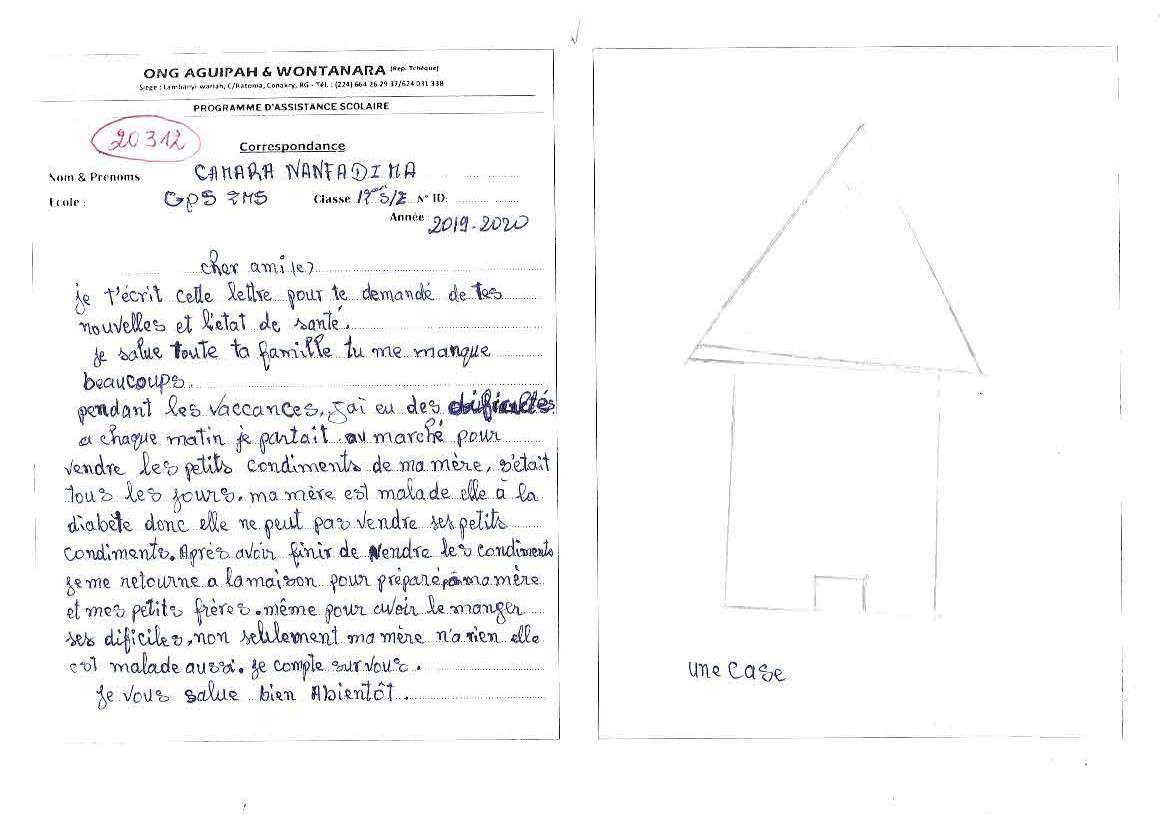 ONG AGUIPAH & WONTANARA (Rep. Tchèque)
Siège : Lambanyi wariah, C/Ratoma, Conakry, RG - Tél. : (224) 664 26 29 37/624 031 338
PROGRAMME D'ASSISTANCE SCOLAIRE
20312
Correspondance
Nom & Prénoms CAMARA NANFADIMA
Ecole : GPS Classe N° ID.
Année 2019-2020
cher ami(e)
je t'écrit cette lettre pour te demandé de tes
nouvelles et l'etat de santé.
Je salue toute ta famille tu me manque
beaucoups.
pendant les vaccances, j'ai eu des dificultés
a chaque matin je partait au marché pour
vendre les petits condiments de ma mère, s'était
tous les jours. ma mère est malade elle à la
diabète donc elle ne peut pas vendre ses petits
condiments. Après avoir finir de vendre les condiments
je me retourne a la maison pour préparé ma mère
et mes petits frères. même pour avoir le manger
ses dificiles, non seulement ma mère n'a rien elle
est malade aussi. je compte sur vous.
Je vous salue bien Abientôt.
une case